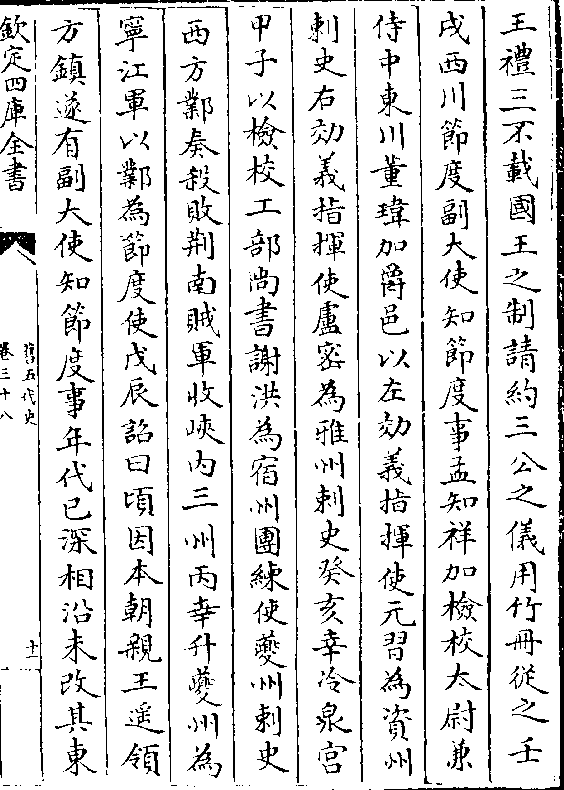 王禮三不載國王之制請約三公之儀用竹冊從之壬
戌西川節度副大使知節度事孟知祥加檢校太尉兼
侍中東川董璋加爵邑以左効義指揮使元習為資州
刺史右効義指揮使盧密為雅州刺史癸亥幸冷泉宮
甲子以檢校工部尚書謝洪為宿州團練使夔州刺史
西方鄴奏殺敗荆南賊軍收峽內三州丙幸升夔州為
寧江軍以鄴為節度使戊辰詔曰頃因本朝親王遥領
方鎮遂有副大使知節度事年代已深相沿未改其東
欽定四庫全書
舊五代史
卷三十八
十一